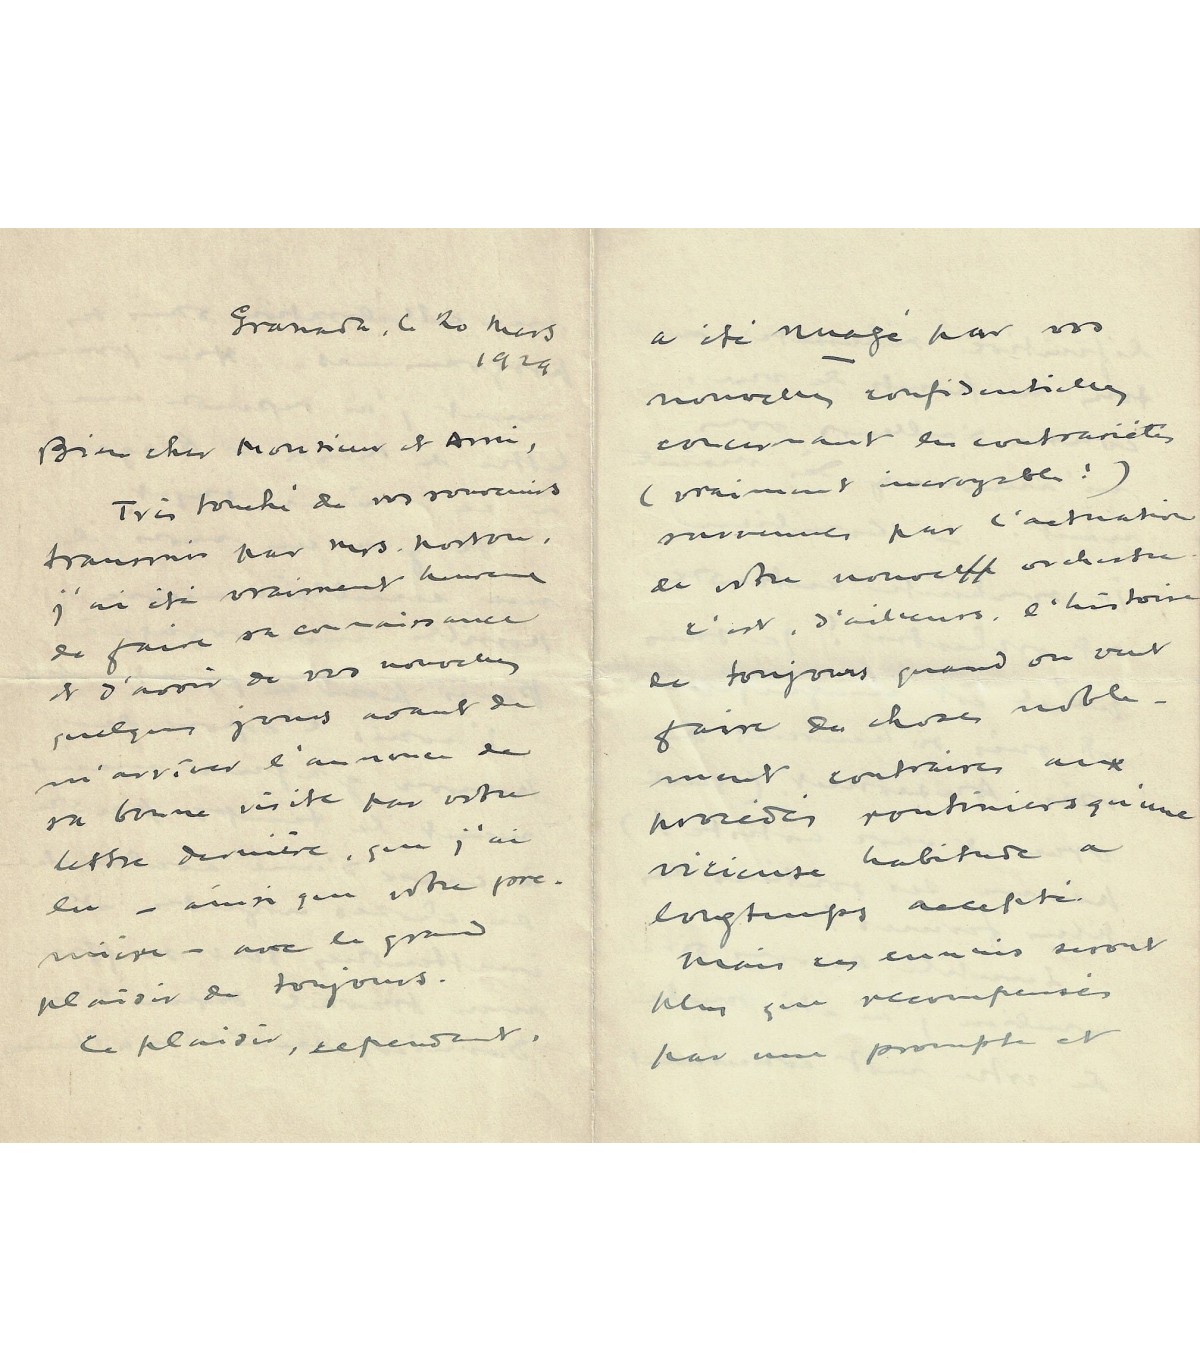 Granada, le 20 Mars
1929
Bien cher Monsieur et Ami,
Très touché de vos souvenirs
transmis par Mrs. Norton,
j'ai été vraiment heureux
de faire sa connaissance
et d'avoir de vos nouvelles
quelques jours avant de
m'arriver l'annonce de
sa bonne visite par votre
lettre dernière, que j'ai
lu – ainsi que votre pre-
mière – avec le grand
plaisir de toujours.
Ce plaisir, cependant,
a été nuagé par vos
nouvelles confidentielles
concernant les contrariétés
(vraiment incroyables!)
survenues par l'actuation
de votre nouvel orchestre.
C'est, d'ailleurs, l'histoire
de toujours quand on veut
faire des choses noble-
ment contraires aux
procédés routiniers qu'une
vicieuse habitude a
longtemps accepté.
Mais ces ennuis seront
plus que recompensés
par une prompte et